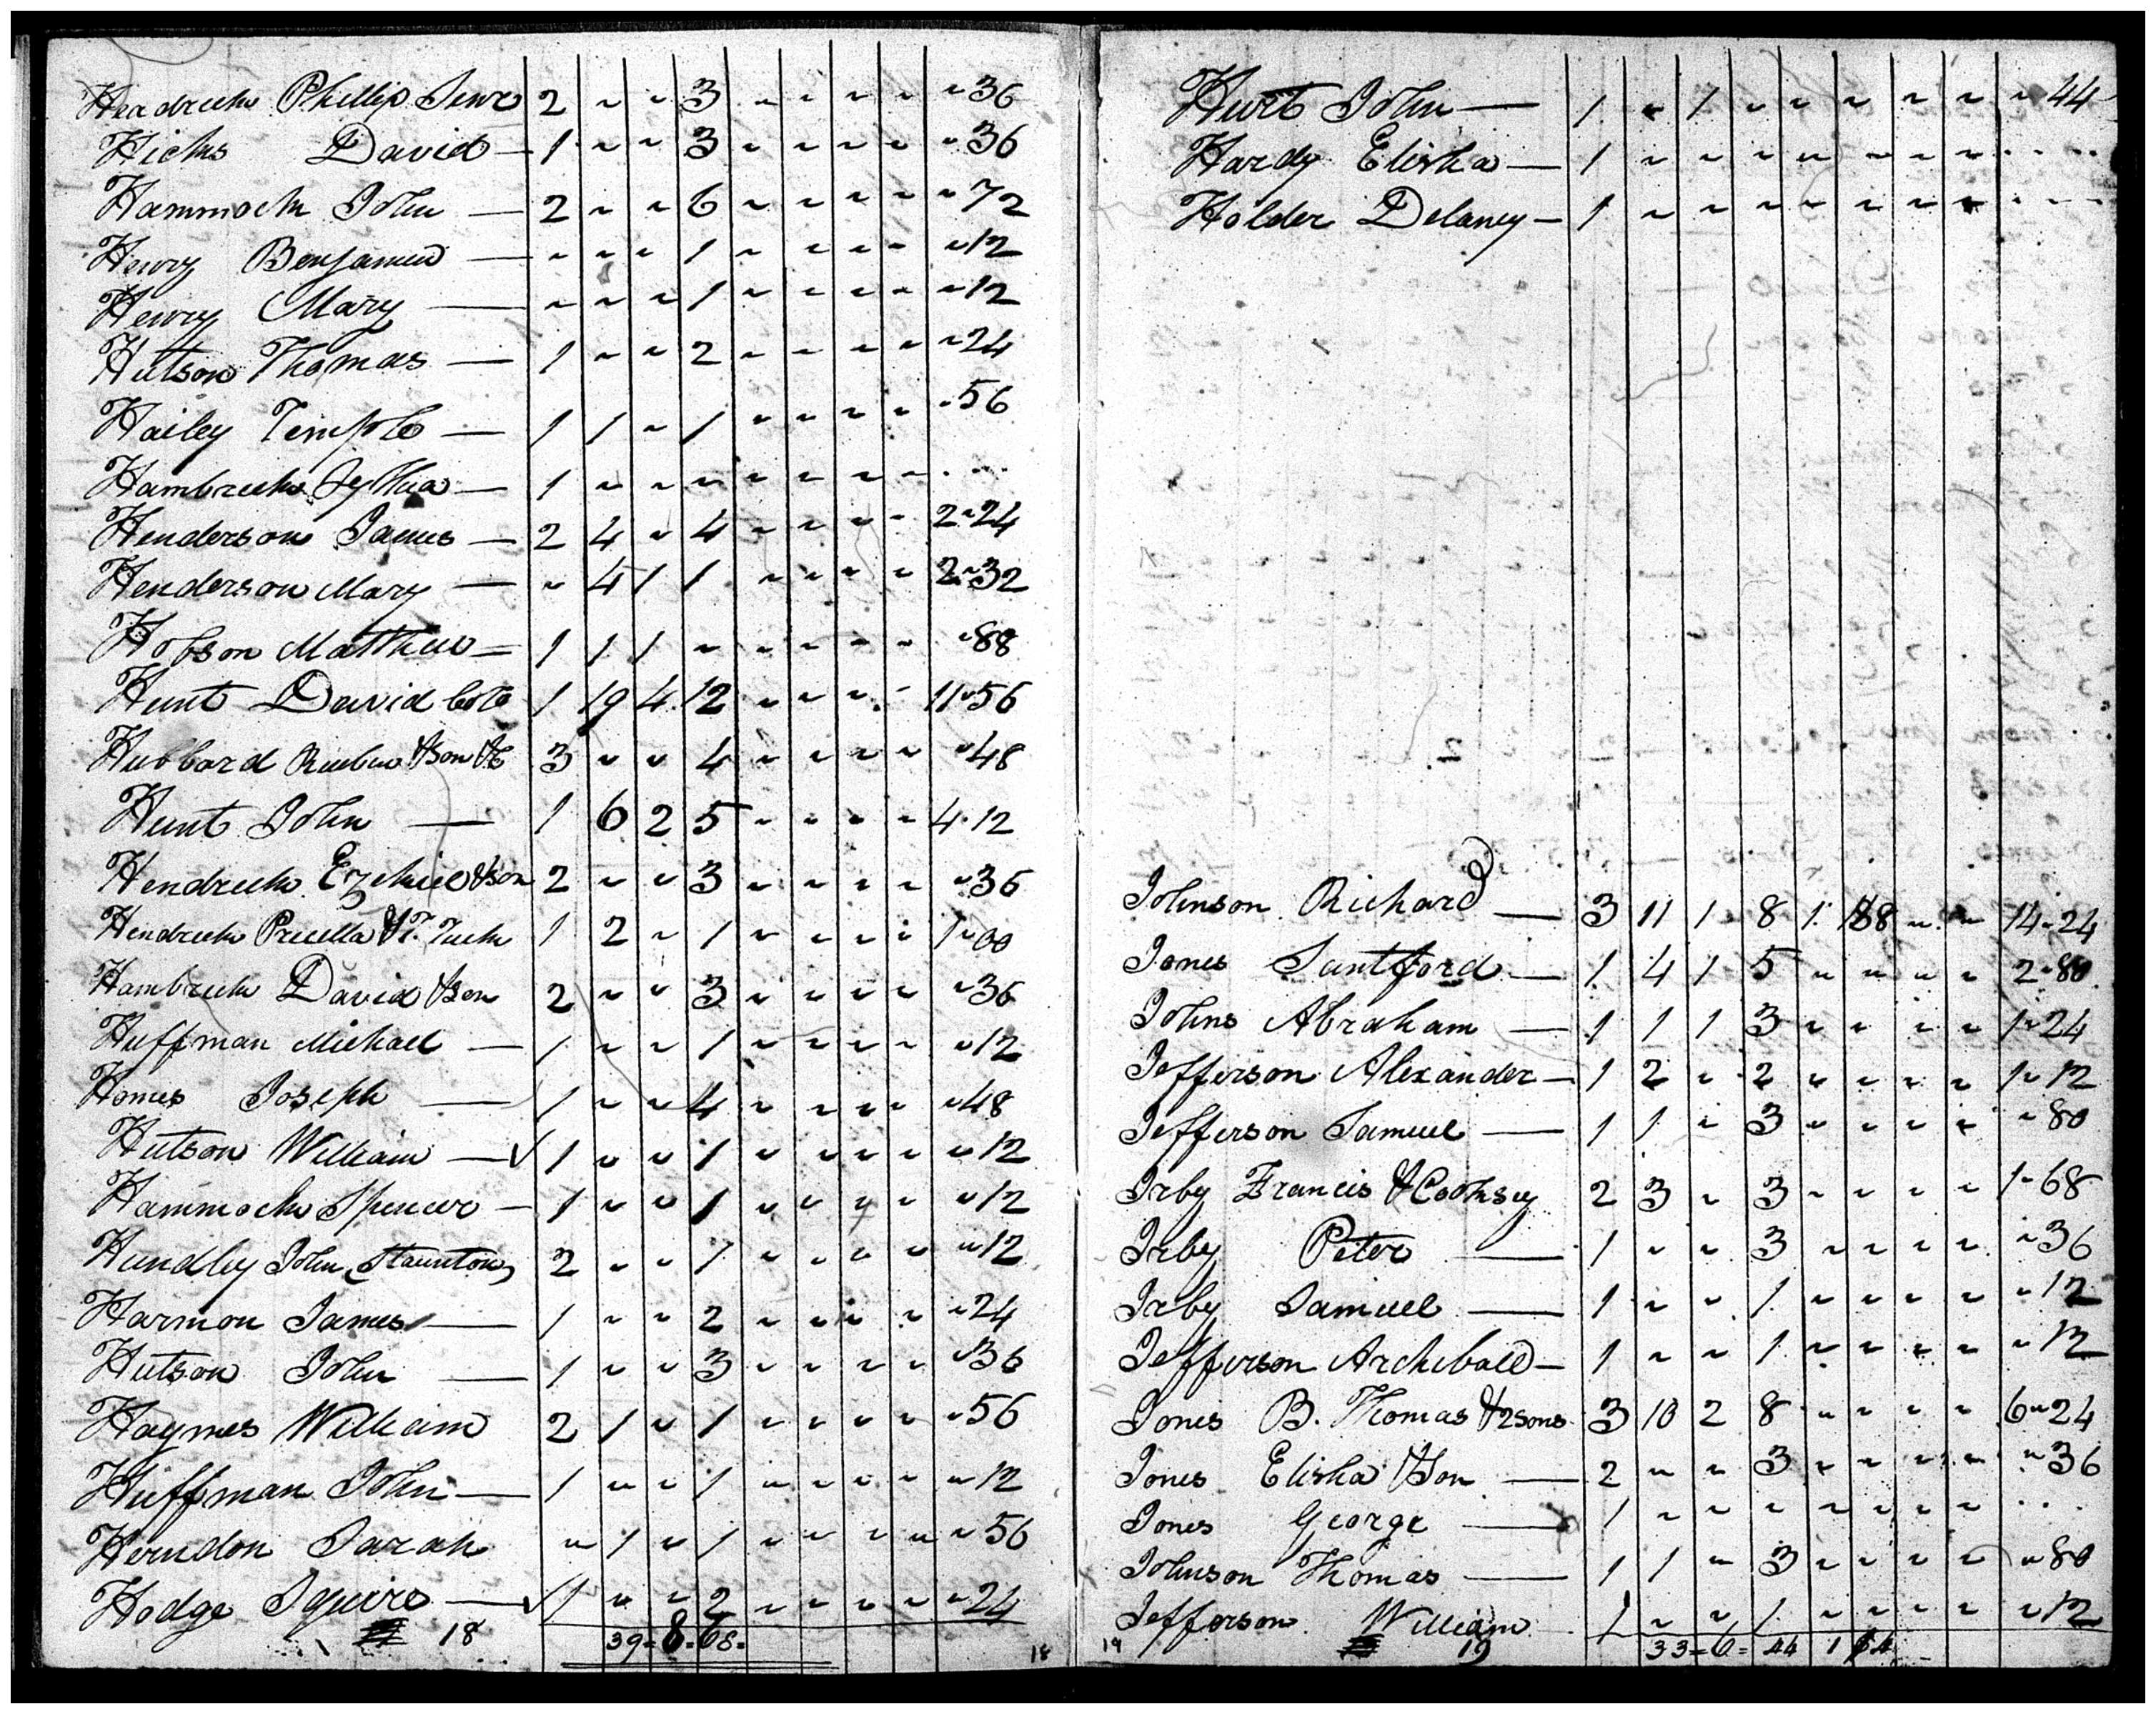 Hendrick Phillip Senr 2 " " 3 " " " " " 36
Hicks David — 1 " " 3 " " " " " 36
Hammock John — 2 " " 6 " " " " " 72
Henry Benjamin — " " " 1 " " " " " 12
Henry Mary — " " " 1 " " " " " 12
Hutson Thomas — 1 " " 2 " " " " " 24
Hailey Temple — 1 1 " 1 " " " " " 56
Hambrick — 1 " " " " " " " . . .
Henderson James — 2 4 " 4 " " " " 2 " 24
Henderson Mary — " 4 1 1 " " " " 2 " 32
Hobson Matthew — 1 1 1 " " " " " " 88
Hunt David 1 19 4 12 " " " " 11 " 56
Hubbard Reuben & son &c 3 " " 4 " " " " " 48
Hunt John — 1 6 2 5 " " " " 4 . 12
Hendrick Ezekiel & son 2 " " 3 " " " " " 36
Hendrick Precilla & T. Tuck 1 2 " 1 " " " " 1 " 00
Hambrick David & son 2 " " 3 " " " " " 36
Huffman Michael — 1 " " 1 " " " " " 12
Homes Joseph — 1 " " 4 " " " " " 48
Hutson William — √ 1 " " 1 " " " " " 12
Hammock Spencer — 1 " " 1 " " " " " 12
Hundley John (Staunton) 2 " " 1 " " " " " 12
Harmon James — 1 " " 2 " " " " " 24
Hutson John — 1 " " 3 " " " " " 36
Haymes William 2 1 " 1 " " " " " 56
Huffman John — 1 " " 1 " " " " " 12
Herndon Sarah " 1 " 1 " " " " " 56
Hodge Squire — √ 1 " " 2 " " " " " 24
18 39 = 8 = 68 =
18
Hurt John — 1 " 1 " " " " " " 44
Hardy Elisha — 1 " " " " " " " . . .
Holder Delaney — 1 " " " " " " " . . .
Johnson Richard — 3 11 1 8 1 188 " " 14 " 24
Jones Santford — 1 4 1 5 " " " " 2 " 80
Johns Abraham — 1 1 1 3 " " " " 1 " 24
Jefferson Alexander — 1 2 " 2 " " " " 1 " 12
Jefferson Samuel — 1 1 " 3 " " " " " 80
Irby Francis & Cooksey 2 3 " 3 " " " " 1 " 68
Irby Peter — 1 " " 3 " " " " " 36
Irby Samuel — 1 " " 1 " " " " " 12
Jefferson Archibald — 1 " " 1 " " " " " 12
Jones B. Thomas & 2 sons 3 10 2 8 " " " " 6 " 24
Jones Elisha & Son — 2 " " 3 " " " " " 36
Jones George — 1 " " " " " " " . . .
Johnson Thomas — 1 1 " 3 " " " " " 80
Jefferson William 1 " " 1 " " " " " 12
19 19 33 = 6 = 44 1